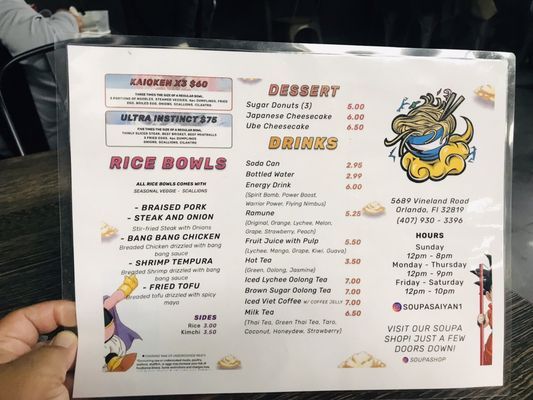 KAIOKEN X3 $60
THREE TIMES THE SIZE OF A REGULAR BOWL.
3 PORTIONS OF NOODLES, STEAMED VEGGIES, 4pc DUMPLINGS, FRIED
EGG, BOILED EGG, ONIONS, SCALLIONS, CILANTRO
ULTRA INSTINCT $75
FIVE TIMES THE SIZE OF A REGULAR BOWL.
THINLY SLICED STEAK, BEEF BRISKET, BEEF MEATBALLS
2 FRIED EGGS, 4pc DUMPLINGS
ONIONS, SCALLIONS, CILANTRO
RICE BOWLS
ALL RICE BOWLS COMES WITH
SEASONAL VEGGIE - SCALLIONS
- BRAISED PORK
- STEAK AND ONION
Stir-fried Steak with Onions
- BANG BANG CHICKEN
Breaded Chicken drizzled with bang
bang sauce
- SHRIMP TEMPURA
Breaded Shrimp drizzled with bang
bang sauce
- FRIED TOFU
Breaded tofu drizzled with spicy
mayo
SIDES
Rice 3.00
Kimchi 3.50
DESSERT
Sugar Donuts (3) 5.00
Japanese Cheesecake 6.00
Ube Cheesecake 6.50
DRINKS
Soda Can 2.95
Bottled Water 2.99
Energy Drink 6.00
(Spirit Bomb, Power Boost,
Warrior Power, Flying Nimbus)
Ramune 5.25
(Original, Orange, Lychee, Melon,
Grape, Strawberry, Peach)
Fruit Juice with Pulp 5.50
(Lychee, Mango, Grape, Kiwi, Guava)
Hot Tea 3.50
(Green, Oolong, Jasmine)
Iced Lychee Oolong Tea 7.00
Brown Sugar Oolong Tea 7.00
Iced Viet Coffee W/ COFFEE JELLY 7.00
Milk Tea 6.50
(Thai Tea, Green Thai Tea, Taro,
Coconut, Honeydew, Strawberry)
5689 Vineland Road
Orlando, Fl 32819
(407) 930 - 3396
HOURS
Sunday
12pm - 8pm
Monday - Thursday
12pm - 9pm
Friday - Saturday
12pm - 10pm
SOUPASAIYAN1
VISIT OUR SOUPA
SHOP! JUST A FEW
DOORS DOWN!
SOUPASHOP